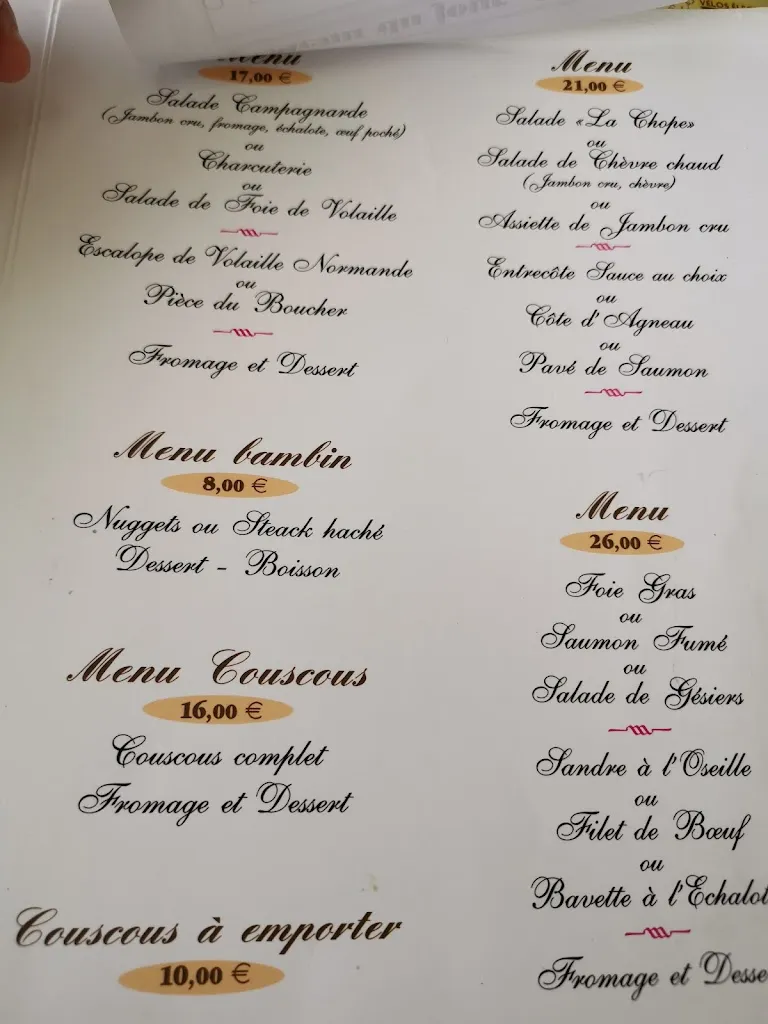 Menu
17,00 €
Salade Campagnarde
(Jambon cru, fromage, échalote, œuf poché)
ou
Charcuterie
ou
Salade de Foie de Volaille
Escalope de Volaille Normande
ou
Pièce du Boucher
Fromage et Dessert
Menu bambin
8,00 €
Nuggets ou Steack haché
Dessert - Boisson
Menu Couscous
16,00 €
Couscous complet
Fromage et Dessert
Couscous à emporter
10,00 €
Menu
21,00 €
Salade «La Chope»
ou
Salade de Chèvre chaud
(Jambon cru, chèvre)
ou
Assiette de Jambon cru
Entrecôte Sauce au choix
ou
Côte d'Agneau
ou
Pavé de Saumon
Fromage et Dessert
Menu
26,00 €
Foie Gras
ou
Saumon Fumé
ou
Salade de Gésiers
Sandre à l'Oseille
ou
Filet de Bœuf
ou
Bavette à l'Echalot
Fromage et Desse